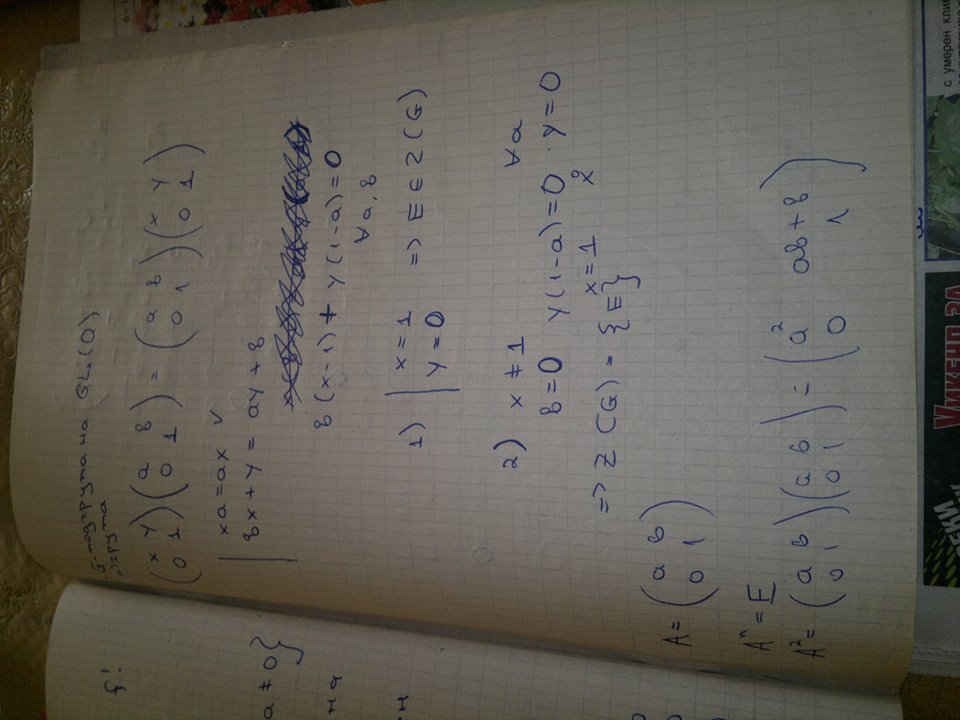 G-подгрупа на GL₂(Q)
група
(x y; 0 1)(a b; 0 1) = (a b; 0 1)(x y; 0 1)
| xa = ax ✓
| bx + y = ay + b
b(x-1) + y(1-a) = 0
∀a, b
1) | x = 1
| y = 0 => E ∈ Z(G)
2) x ≠ 1
b = 0 y(1-a) = 0 ∀a
y = 0
x = 1
=> Z(G) = {E}
A = (a b; 0 1)
Aⁿ = E
A² = (a b; 0 1)(a b; 0 1) = (a² ab+b; 0 1)
f!
a ≠ 0}
на
с умерен кли
Уикенд за